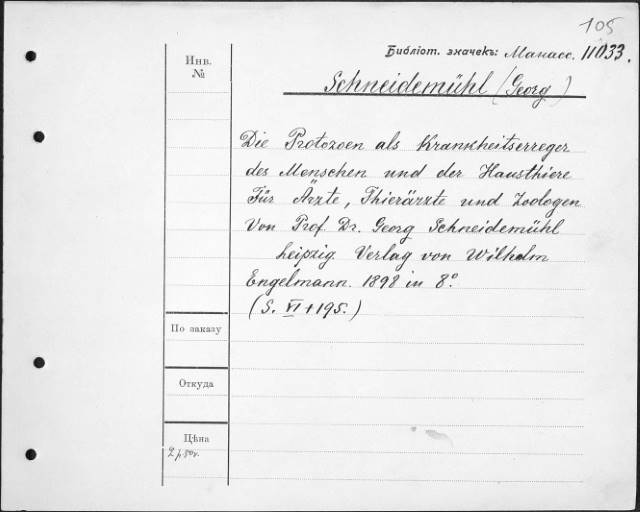 105
Библіот. значекъ: Манасс. 11033.
Инв.
№
Schneidemühl (Georg)
Die Protozoen als Krankheitserreger
des Menschen und der Hausthiere
Für Ärzte, Thierärzte und Zoologen
Von Prof. Dr. Georg Schneidemühl
Leipzig. Verlag von Wilhelm
Engelmann. 1898 in 8°.
(S. VI + 195.)
По заказу
Откуда
Цѣна
2 р. 50 к.